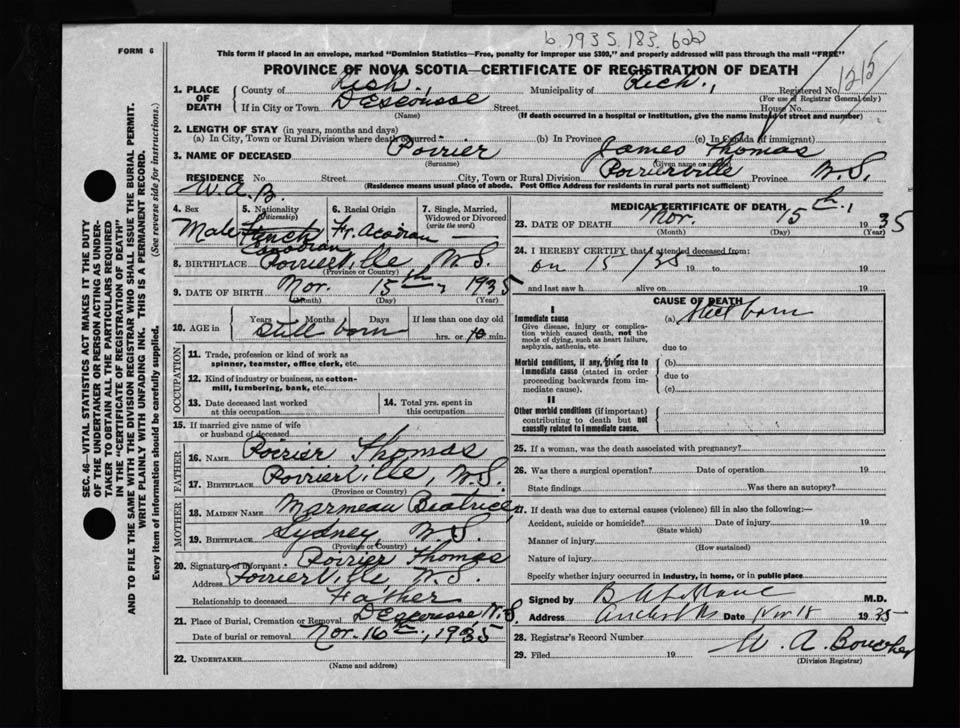 b. 1935. 183. 622
FORM 6
This form if placed in an envelope, marked "Dominion Statistics—Free, penalty for improper use $300," and properly addressed will pass through the mail "FREE"
PROVINCE OF NOVA SCOTIA—CERTIFICATE OF REGISTRATION OF DEATH
1. PLACE OF DEATH
County of Rich. Municipality of Rich., Registered No. 1212
(For use of Registrar General only)
If in City or Town D'Escousse Street House No.
(Name) (If death occurred in a hospital or institution, give the name instead of street and number)
2. LENGTH OF STAY (in years, months and days)
(a) In City, Town or Rural Division where death occurred (b) In Province (c) In Canada (if immigrant)
3. NAME OF DECEASED Poirier James Thomas
(Surname) (Given name or names)
RESIDENCE No. Street City, Town or Rural Division Poirierville Province N.S.
(Residence means usual place of abode. Post Office Address for residents in rural parts not sufficient)
W.A.B.
4. Sex 5. Nationality (Citizenship) 6. Racial Origin 7. Single, Married, Widowed or Divorced (write the word)
Male French Fr. Acadian
Canadian
8. BIRTHPLACE Poirierville N.S.
(Province or Country)
9. DATE OF BIRTH Nov. 15th, 1935
(Month) (Day) (Year)
10. AGE in Years Months Days If less than one day old
Still born hrs. or 10 min.
OCCUPATION
11. Trade, profession or kind of work as spinner, teamster, office clerk, etc.
12. Kind of industry or business, as cotton-mill, lumbering, bank, etc.
13. Date deceased last worked at this occupation
14. Total yrs. spent in this occupation
15. If married give name of wife or husband of deceased
FATHER
16. NAME Poirier Thomas
17. BIRTHPLACE Poirierville, N.S.
(Province or Country)
MOTHER
18. MAIDEN NAME Marmeau Beatrice
19. BIRTHPLACE Sydney, N.S.
(Province or Country)
20. Signature of informant Poirier Thomas
Address Poirierville, N.S.
Relationship to deceased Father
21. Place of Burial, Cremation or Removal D'Escousse N.S.
Date of burial or removal Nov. 16th, 1935
22. UNDERTAKER
(Name and address)
MEDICAL CERTIFICATE OF DEATH
23. DATE OF DEATH Nov. 15th, 1935
(Month) (Day) (Year)
24. I HEREBY CERTIFY that I attended deceased from:
on 15/35 19 to 19
and last saw h alive on 19
CAUSE OF DEATH
I
Immediate cause (a) Still born
Give disease, injury or complication which caused death, not the mode of dying, such as heart failure, asphyxia, asthenia, etc.
due to
Morbid conditions, if any, giving rise to immediate cause (stated in order proceeding backwards from immediate cause).
(b)
due to
(c)
II
Other morbid conditions (if important) contributing to death but not causally related to immediate cause.
25. If a woman, was the death associated with pregnancy?
26. Was there a surgical operation? Date of operation 19
State findings Was there an autopsy?
27. If death was due to external causes (violence) fill in also the following:—
Accident, suicide or homicide? Date of injury 19
(State which)
Manner of injury
(How sustained)
Nature of injury
Specify whether injury occurred in industry, in home, or in public place
Signed by B A LeBlanc M.D.
Address Arichat NS Date Nov 18 1935
28. Registrar's Record Number
29. Filed 19 W. A. Boucher
(Division Registrar)
SEC. 46—VITAL STATISTICS ACT MAKES IT THE DUTY OF THE UNDERTAKER OR PERSON ACTING AS UNDERTAKER TO OBTAIN ALL THE PARTICULARS REQUIRED IN THE "CERTIFICATE OF REGISTRATION OF DEATH" AND TO FILE THE SAME WITH THE DIVISION REGISTRAR WHO SHALL ISSUE THE BURIAL PERMIT.
WRITE PLAINLY WITH UNFADING INK. THIS IS A PERMANENT RECORD.
Every item of information should be carefully supplied. (See reverse side for instructions.)